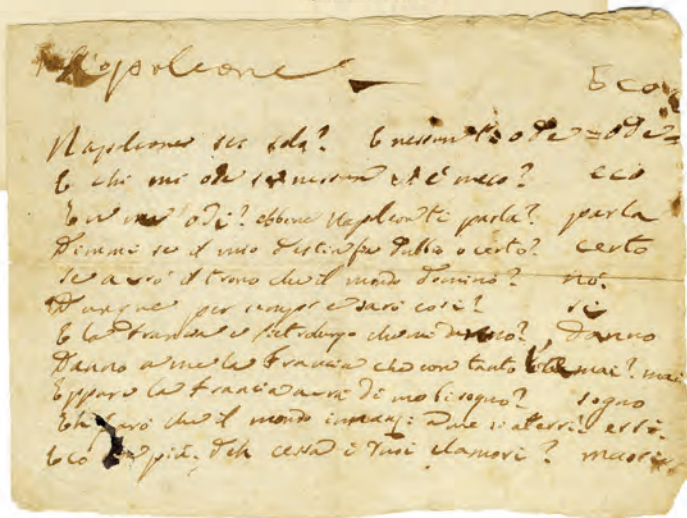 Napoleone Eco
Napoleone sei solo? E nessun t'ode = ode =
E chi mi ode se nessun è meco? eco
E tu m'odi? ebbene Napoleon ti parla? parla
Dimmi se il mio destin fu dubbio o certo? certo
se avrò il trono che il mondo domino? no.
Dunque per sempre sarò così? si
E la Francia e Pietroburgo che mi danno? danno
Danno a me la Francia che con tanto mai? mai
Eppure la Francia avrà di me bisogno? sogno
Eh farò che il mondo innanzi a me si atterri erri.
Eco più. deh cessa i tuoi clamori? mori